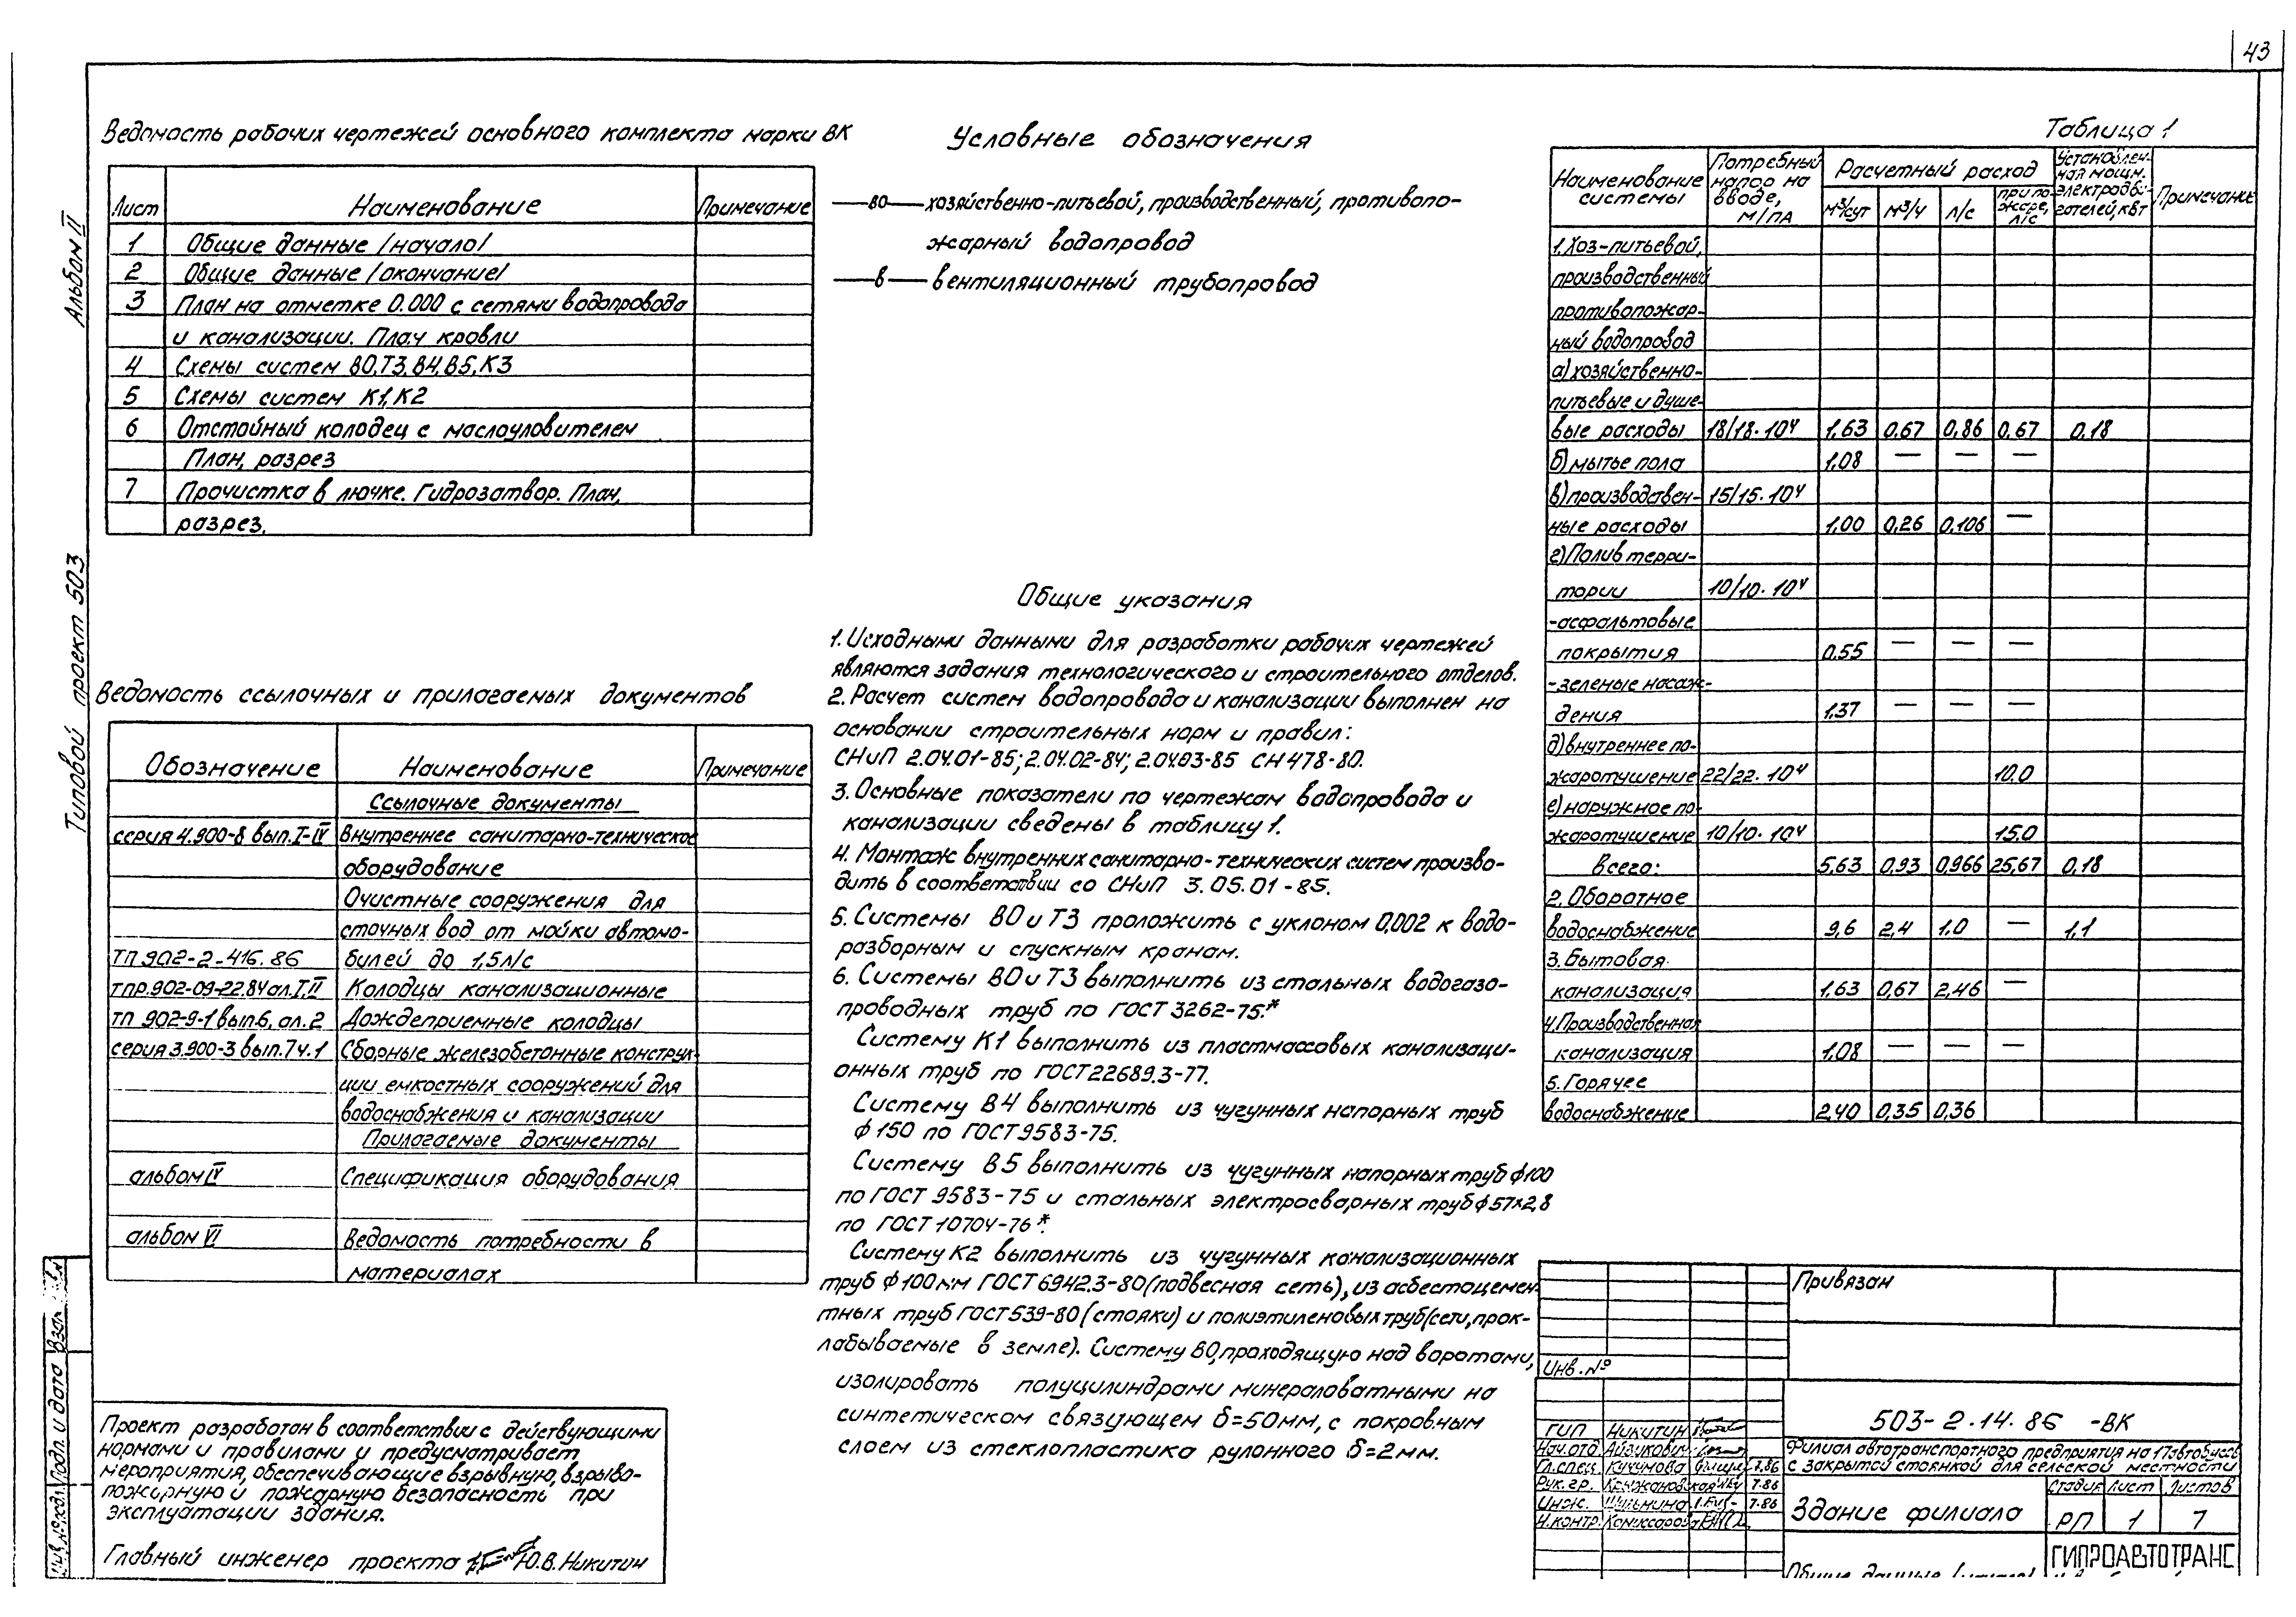 43
Альбом II
Типовой проект 503
Ведомость рабочих чертежей основного комплекта марки ВК
Лист Наименование Примечание
1 Общие данные /начало/
2 Общие данные /окончание/
3 План на отметке 0.000 с сетями водопровода
и канализации. План кровли
4 Схемы систем В0,Т3,В4,В5,К3
5 Схемы систем К1,К2
6 Отстойный колодец с маслоуловителем
План, разрез
7 Прочистка в лючке. Гидрозатвор. План,
разрез.
Ведомость ссылочных и прилагаемых документов
Обозначение Наименование Примечание
Ссылочные документы
серия 4.900-8 вып.I-IV Внутреннее санитарно-техническое
оборудование
Очистные сооружения для
сточных вод от мойки автомо-
ТП 902-2-416.86 билей до 1,5л/с
тпр.902-09-22.84 ал.I,II Колодцы канализационные
тп 902-9-1 вып.6, ал.2 Дождеприемные колодцы
серия 3.900-3 вып.7 ч.1 Сборные железобетонные конструк-
ции емкостных сооружений для
водоснабжения и канализации
Прилагаемые документы
альбом IV Спецификация оборудования
альбом VI Ведомость потребности в
материалах
Проект разработан в соответствии с действующими
нормами и правилами и предусматривает
мероприятия, обеспечивающие взрывную, взрыво-
пожарную и пожарную безопасность при
эксплуатации здания.
Главный инженер проекта Ю.В.Никитин
Условные обозначения
—В0— хозяйственно-питьевой, производственный, противопо-
жарный водопровод
—в— вентиляционный трубопровод
Общие указания
1. Исходными данными для разработки рабочих чертежей
являются задания технологического и строительного отделов.
2. Расчет систем водопровода и канализации выполнен на
основании строительных норм и правил:
СНиП 2.04.01-85; 2.04.02-84; 2.04.03-85 СН 478-80.
3. Основные показатели по чертежам водопровода и
канализации сведены в таблицу 1.
4. Монтаж внутренних санитарно-технических систем произво-
дить в соответствии со СНиП 3.05.01-85.
5. Системы В0 и Т3 проложить с уклоном 0,002 к водо-
разборным и спускным кранам.
6. Системы В0 и Т3 выполнить из стальных водогазо-
проводных труб по ГОСТ 3262-75.*
Систему К1 выполнить из пластмассовых канализаци-
онных труб по ГОСТ22689.3-77.
Систему В4 выполнить из чугунных напорных труб
ф 150 по ГОСТ 9583-75.
Систему В5 выполнить из чугунных напорных труб ф100
по ГОСТ 9583-75 и стальных электросварных труб ф57×2,8
по ГОСТ 10704-76*.
Систему К2 выполнить из чугунных канализационных
труб ф100мм ГОСТ 6942.3-80 (подвесная сеть), из асбестоцемен-
тных труб ГОСТ 539-80 (стояки) и полиэтиленовых труб (сети, прок-
лабываемые в земле). Систему В0, проходящую над воротами,
изолировать полуцилиндрами минераловатными на
синтетическом связующем δ=50мм, с покровным
слоем из стеклопластика рулонного δ=2мм.
Таблица 1
Наименование системы Потребный напор на вводе, м/ПА Расчетный расход Установлен-ная мощн. электродви-гателей, квт Примечание
м³/сут м³/ч л/с при по-жаре, л/с
1. Хоз-питьевой,
производственный
противопожар-
ный водопровод
а) хозяйственно-
питьевые и душе-
вые расходы 18/18·10⁴ 1,63 0,67 0,86 0,67 0,18
б) мытье пола 1,08 — — —
в) производствен- 15/15·10⁴
ные расходы 1,00 0,26 0,106 —
г) Полив терри-
тории 10/10·10⁴
-асфальтовые
покрытия 0.55 — — —
-зеленые насаж-
дения 1,37 — — —
д) внутреннее по-
жаротушение 22/22·10⁴ 10.0
е) наружное по-
жаротушение 10/10·10⁴ 15.0
всего: 5,63 0,93 0,966 25,67 0,18
2. Оборотное
водоснабжение 9,6 2,4 1,0 — 1,1
3. Бытовая
канализация 1,63 0,67 2,46 —
4. Производственная
канализация 1,08 — — —
5. Горячее
водоснабжение 2,40 0,35 0,36
Привязан
Инв.№
503-2.14.86 -ВК
ГИП Никитин
Нач.отд. Айзикович
Гл.спец. Кучумова 7.86
Рук.гр. Крыжановская 7.86
Инж. Шульмина 7.86
Н.контр. Комиссарова
Филиал автотранспортного предприятия на 17 автобусов
с закрытой стоянкой для сельской местности
Здание филиала
Стадия Лист Листов
РП 1 7
Общие данные (начало)
ГИПРОАВТОТРАНС
Инв.№ подл. Подп. и дата Взам.